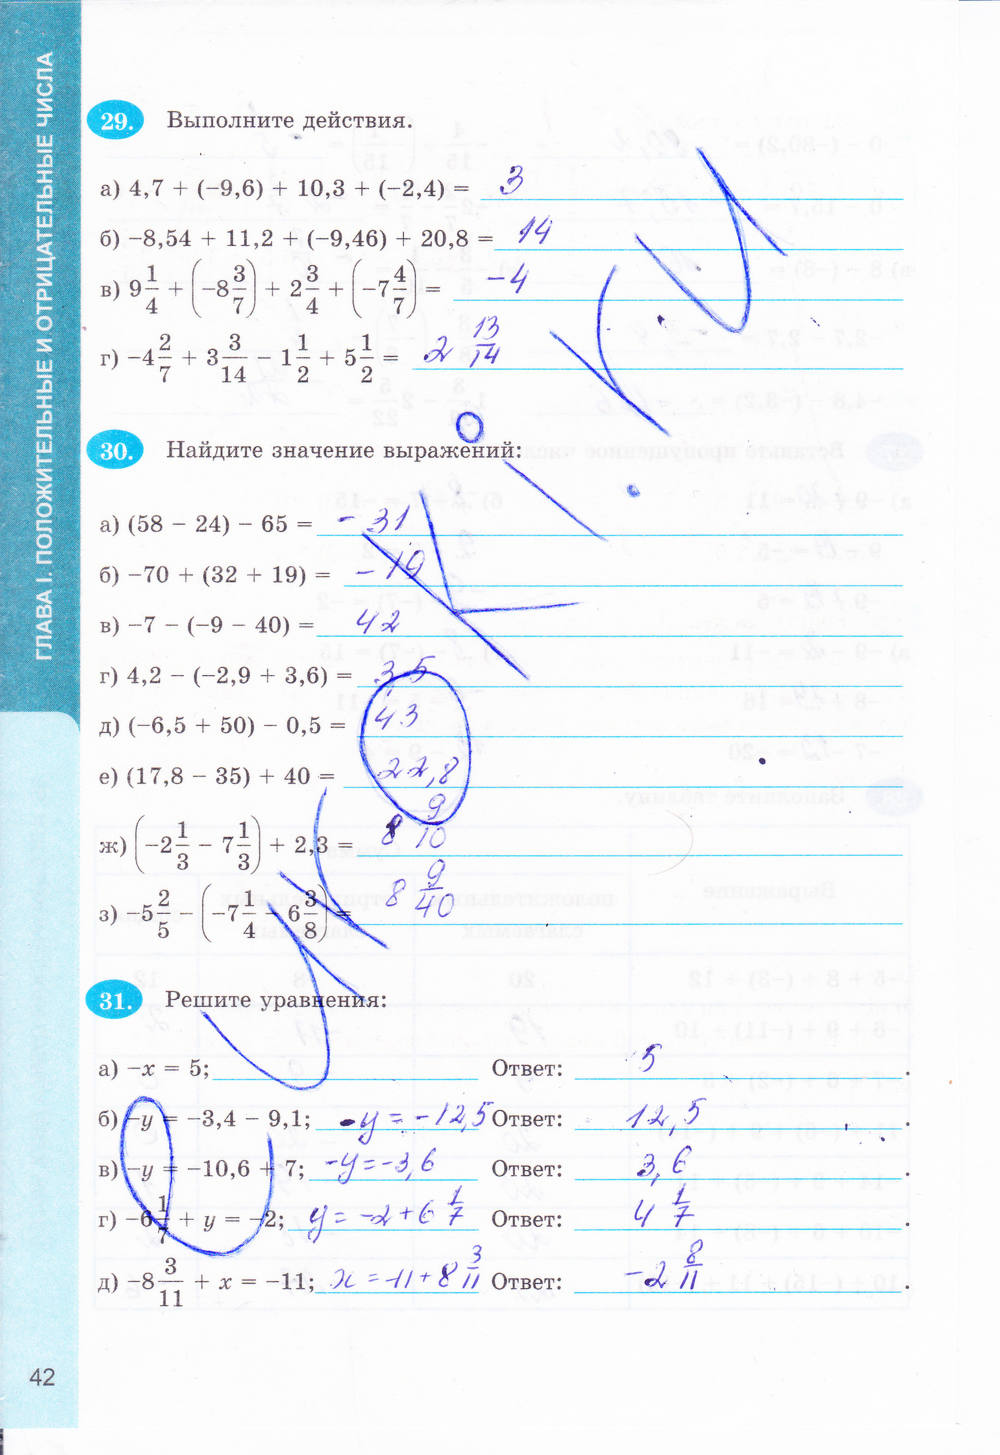 ГЛАВА I. ПОЛОЖИТЕЛЬНЫЕ И ОТРИЦАТЕЛЬНЫЕ ЧИСЛА
29. Выполните действия.
а) 4,7 + (−9,6) + 10,3 + (−2,4) = 3
б) −8,54 + 11,2 + (−9,46) + 20,8 = 14
в) 9 1/4 + (−8 3/7) + 2 3/4 + (−7 4/7) = −4
г) −4 2/7 + 3 3/14 − 1 1/2 + 5 1/2 = 2 13/14
30. Найдите значение выражений:
а) (58 − 24) − 65 = −31
б) −70 + (32 + 19) = −19
в) −7 − (−9 − 40) = 42
г) 4,2 − (−2,9 + 3,6) = 3,5
д) (−6,5 + 50) − 0,5 = 43
е) (17,8 − 35) + 40 = 22,8
ж) (−2 1/3 − 7 1/3) + 2,3 = 8 9/10
з) −5 2/5 − (−7 1/4 − 6 3/8) = 8 9/40
31. Решите уравнения:
а) −x = 5; Ответ: 5.
б) −y = −3,4 − 9,1; −y = −12,5 Ответ: 12,5.
в) −y = −10,6 + 7; −y = −3,6 Ответ: 3,6.
г) −6 1/7 + y = −2; y = −2 + 6 1/7 Ответ: 4 1/7.
д) −8 3/11 + x = −11; x = −11 + 8 3/11 Ответ: −2 8/11.
42